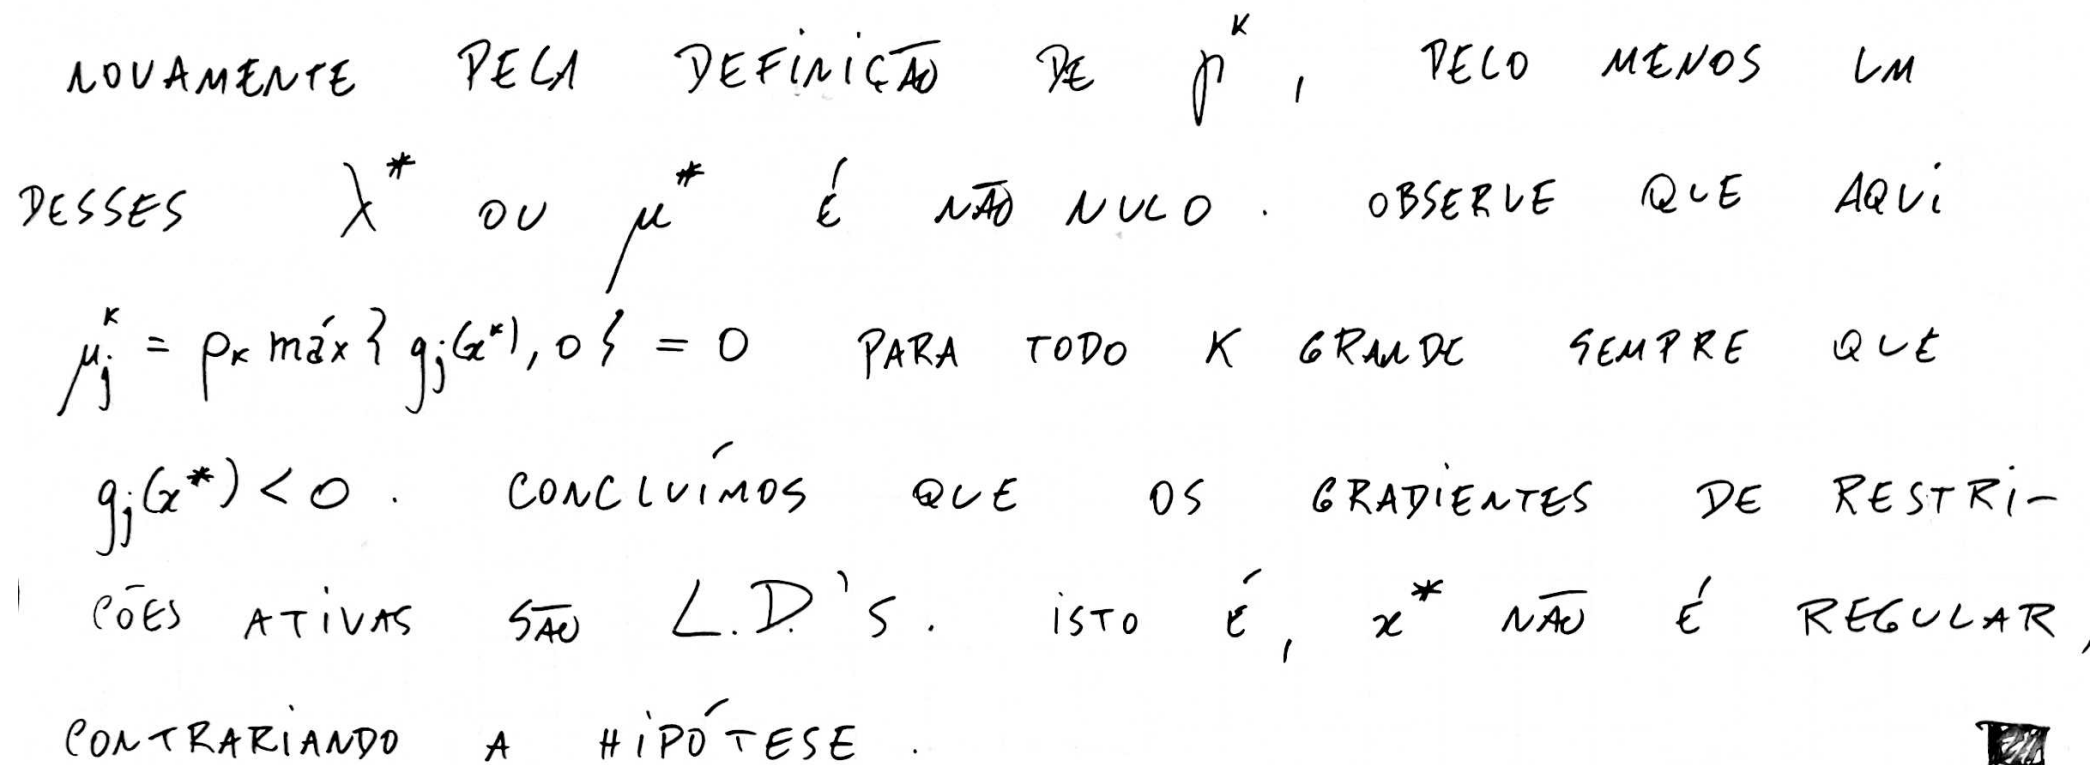 NOVAMENTE PELA DEFINIÇÃO DE p^k, PELO MENOS UM
DESSES λ* OU μ* É NÃO NULO. OBSERVE QUE AQUI
μ_j^k = ρ_k máx{g_j(x^k), 0} = 0 PARA TODO K GRANDE SEMPRE QUE
g_j(x*) < 0. CONCLUÍMOS QUE OS GRADIENTES DE RESTRI-
ÇÕES ATIVAS SÃO L.D.'S. ISTO É, x* NÃO É REGULAR,
CONTRARIANDO A HIPÓTESE.